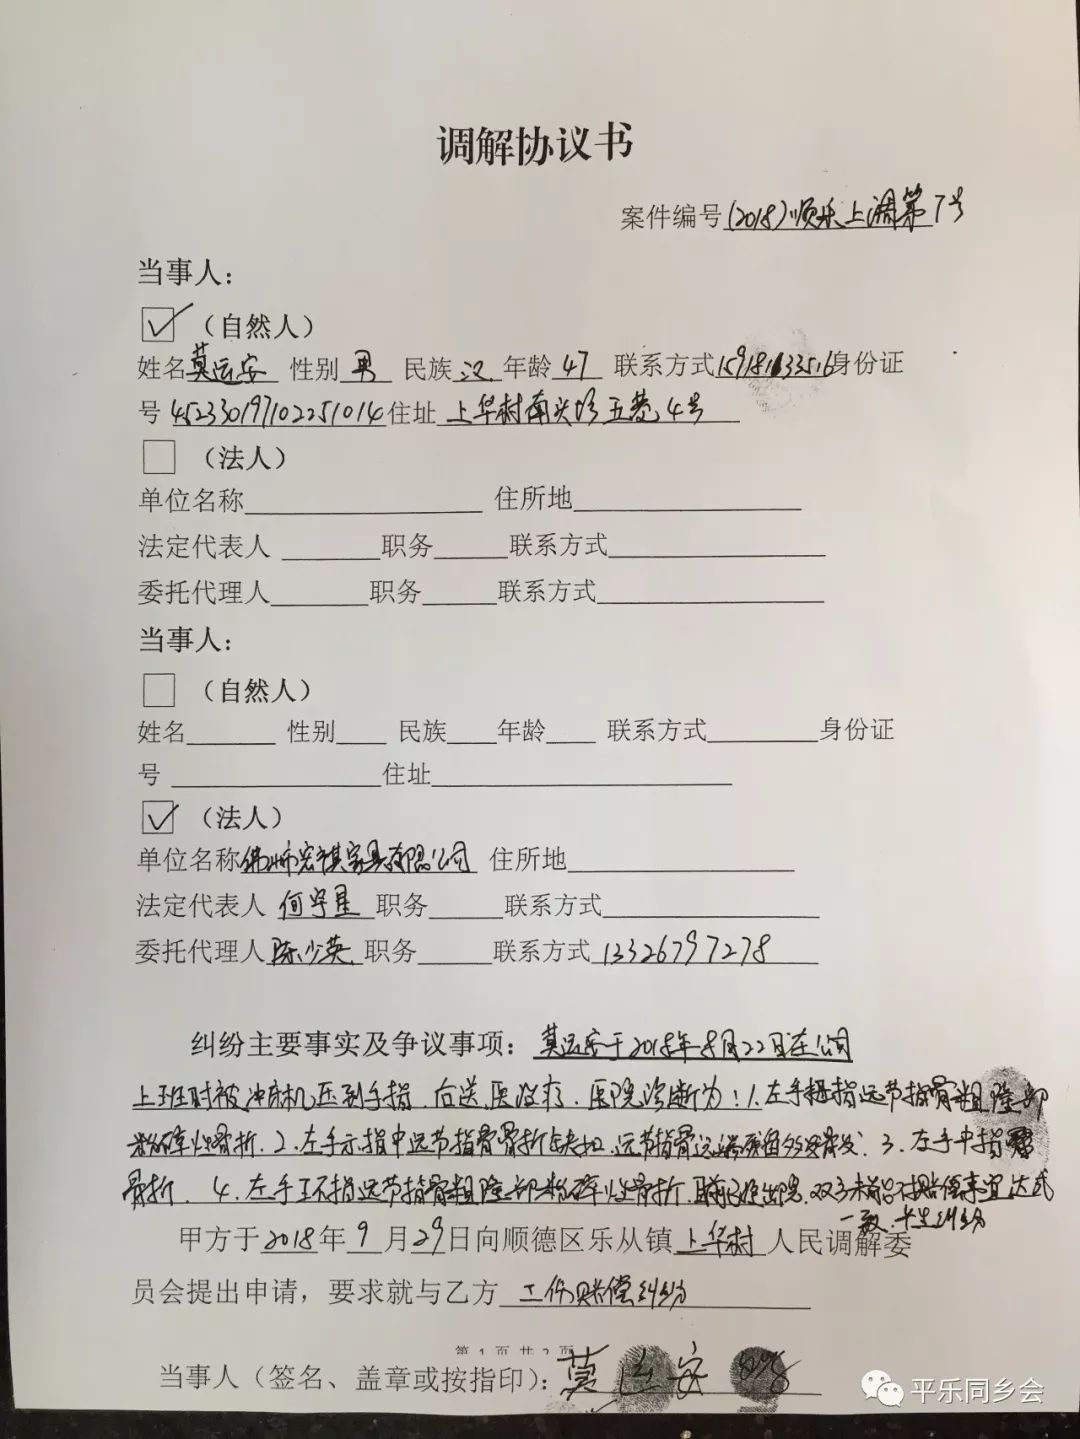 调解协议书
案件编号(2018)顺乐上调第7号
当事人：
（自然人）
姓名莫运安 性别 男 民族 汉 年龄 47 联系方式15918133516身份证
号 452330197102251014住址 上华村南兴坊五巷4号
（法人）
单位名称 住所地
法定代表人 职务 联系方式
委托代理人 职务 联系方式
当事人：
（自然人）
姓名 性别 民族 年龄 联系方式 身份证
号 住址
（法人）
单位名称 家具有限公司 住所地
法定代表人 何守星 职务 联系方式
委托代理人 陈少英 职务 联系方式 13326797278
纠纷主要事实及争议事项：莫运安于2018年8月22日在公司
上班时被冲床机压到手指．后送医 医院诊断为：1.左手拇指远节指骨粗隆部
粉碎性骨折．2.左手示指中远节指骨骨折 远节指骨远端 3.左手中指
骨折．4.左手环指远节指骨粗隆部粉碎性骨折． 出院．双方 赔偿事宜达成
一致． 纠纷
甲方于2018年9月29日向顺德区乐从镇上华村人民调解委
员会提出申请，要求就与乙方 工伤赔偿纠纷
第 1 页 共 2 页
当事人（签名、盖章或按指印）：莫运安
平乐同乡会